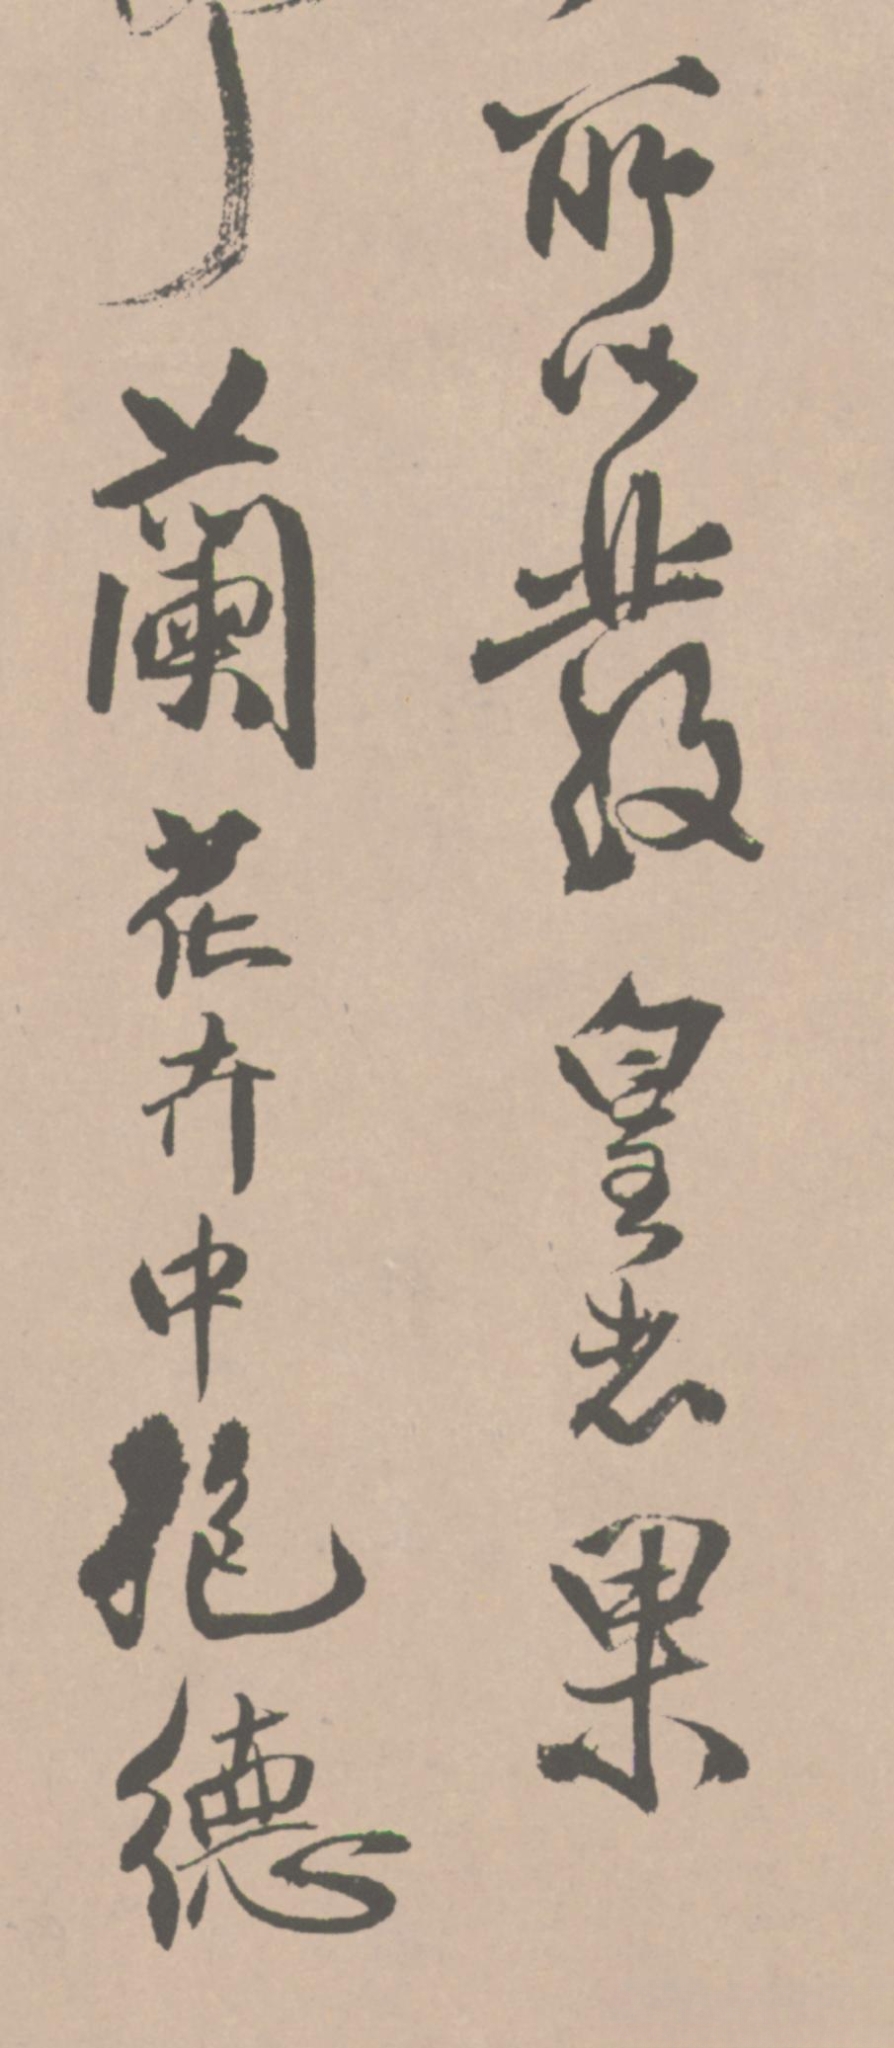 所以發皇老果
蘭花卉中抱德